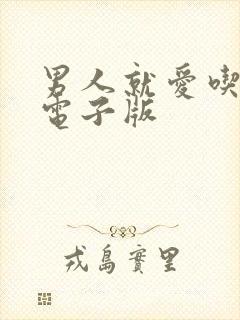 男人就愛喫
電子版
戎島實里